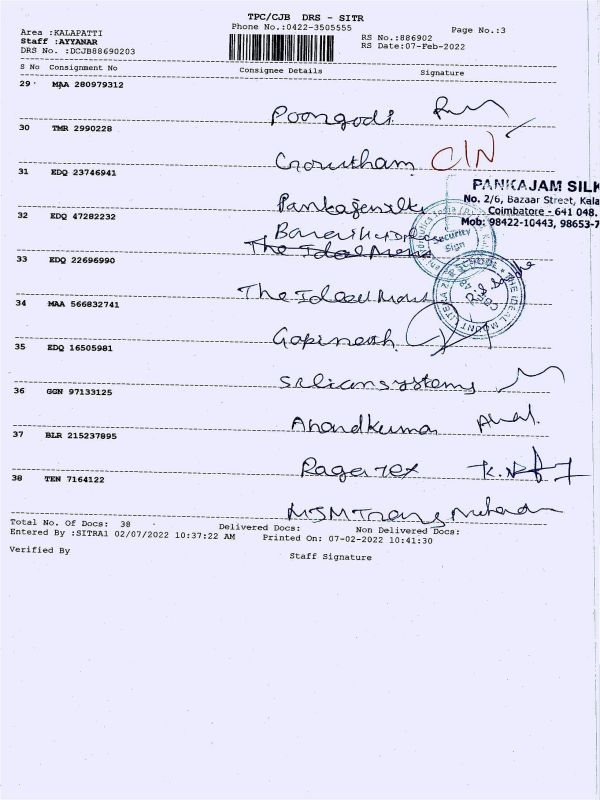 TPC/CJB DRS - SITR
Phone No.:0422-3505555
Page No.:3
Area :KALAPATTI
Staff :AYYANAR
DRS No. :DCJB88690203
RS No.:886902
RS Date:07-Feb-2022
S No Consignment No Consignee Details Signature
29 MAA 280979312
Poongodi
30 TMR 2990228
Gowtham
31 EDQ 23746941
PANKAJAM SILK
No. 2/6, Bazaar Street, Kala
Coimbatore - 641 048.
Mob: 98422-10443, 98653-7
32 EDQ 47282232
Security
Sign
33 EDQ 22696990
The Ideal Moun
34 MAA 566832741
Gopinath
35 EDQ 16505981
Silicansystems
36 GGN 97133125
Anandkumar
37 BLR 215237895
Ragarex
38 TEN 7164122
MSM Trans
Total No. Of Docs: 38 Delivered Docs: Non Delivered Docs:
Entered By :SITRA1 02/07/2022 10:37:22 AM Printed On: 07-02-2022 10:41:30
Verified By Staff Signature